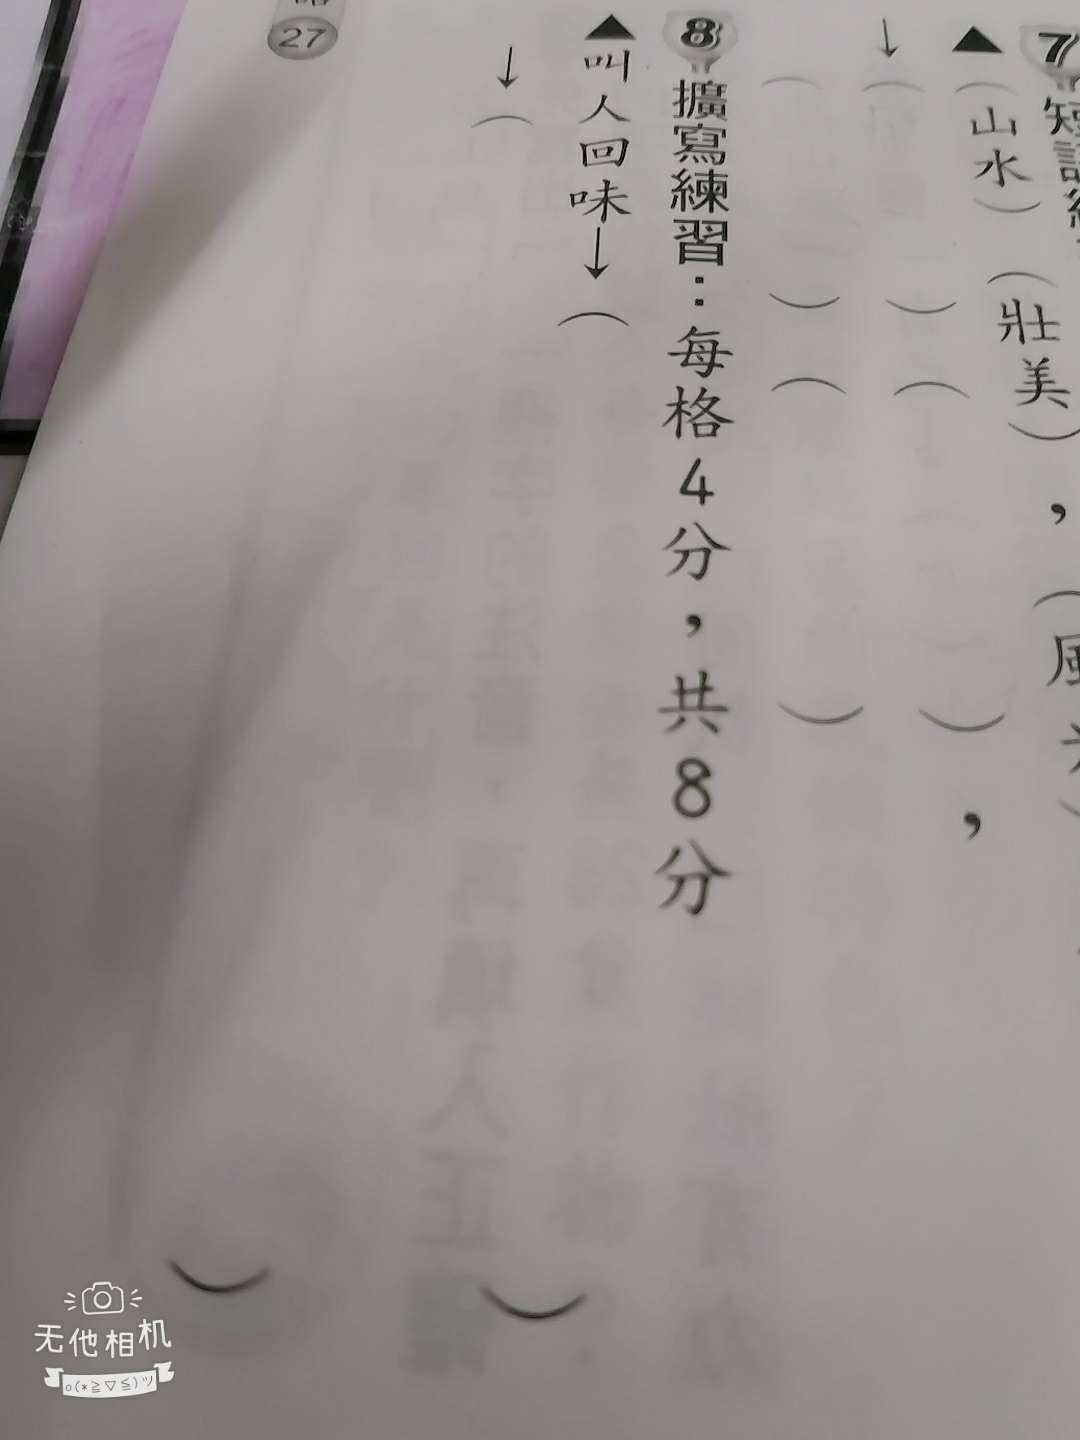 7 短語練
▲（山水）（壯美），（風光）
↓（　）（　），
（　）（　）
8 擴寫練習：每格4分，共8分
▲叫人回味→（　）
↓（　）
27
无他相机
o(*≧▽≦)ツ